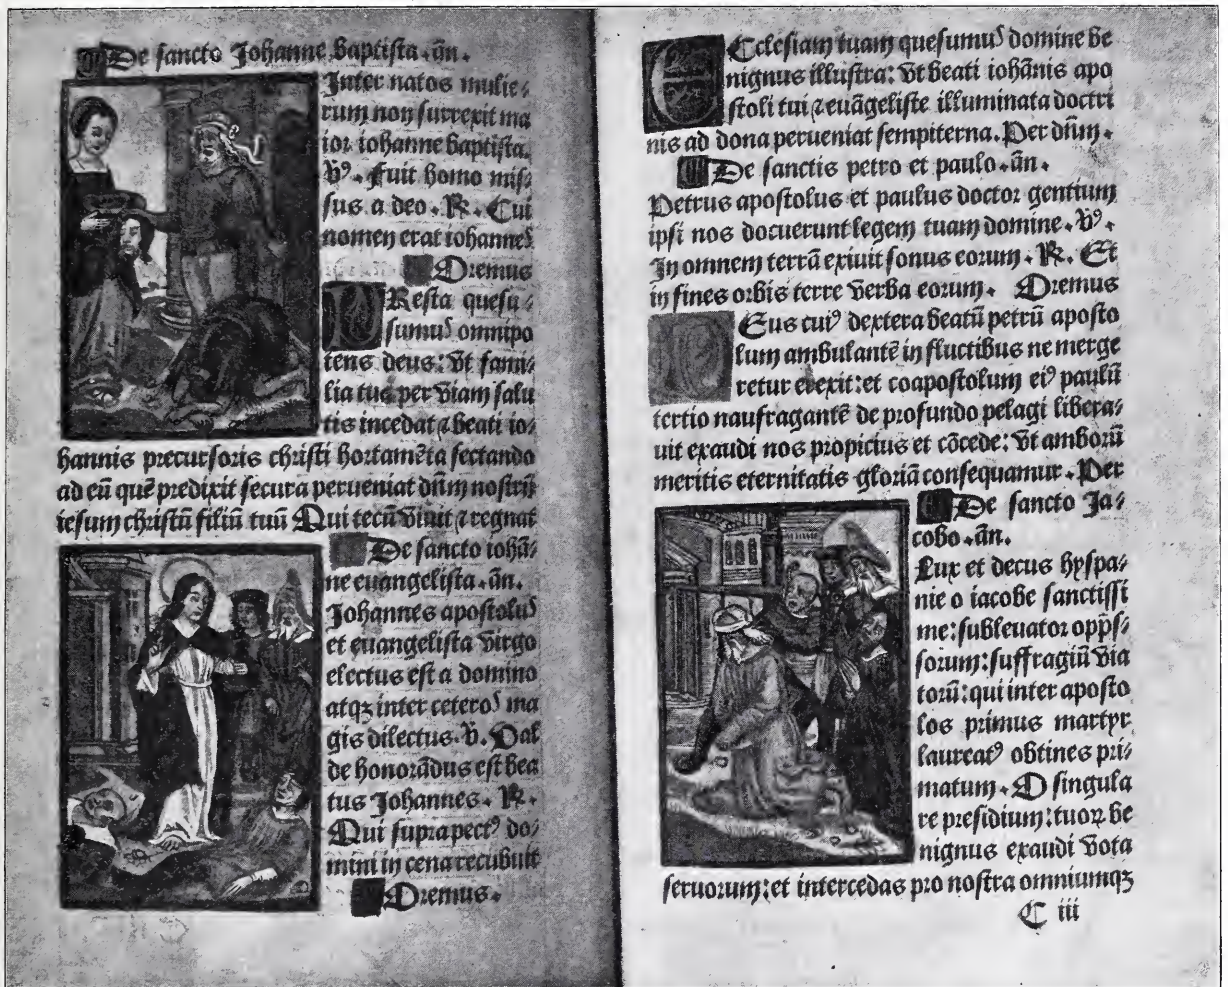 De sancto Johanne Baptista. añ.
Inter natos mulie⸗
rum non surrexit ma
ior iohanne baptista.
V⁹. Fuit homo mis⸗
sus a deo. R. Cui
nomen erat iohannes
Oremus
PResta quesu⸗
sumus omnipo
tens deus: vt fami⸗
lia tua per viam salu
tis incedat ⁊ beati io⸗
hannis precursoris christi hortamēta sectando
ad eū quē predixit secura perueniat dn̄m nostrū
iesum christū filiū tuū Qui tecū viuit ⁊ regnat
De sancto iohā⸗
ne euangelista. añ.
Johannes apostolus
et euangelista virgo
electus est a domino
atqꝫ inter ceteros ma
gis dilectus. V. Val
de honorādus est bea
tus Johannes. R.
Qui supra pect⁹ do⸗
mini in cena recubuit
Oremus.
ECclesiam tuam quesumus domine be
nignus illustra: vt beati iohānis apo
stoli tui ⁊ euāgeliste illuminata doctri
nis ad dona perueniat sempiterna. Per dn̄m.
De sanctis petro et paulo. añ.
Petrus apostolus et paulus doctor gentium
ipsi nos docuerunt legem tuam domine. V⁹.
In omnem terrā exiuit sonus eorum. R. Et
in fines orbis terre verba eorum. Oremus
DEus cui⁹ dextera beatū petrū aposto
lum ambulantē in fluctibus ne merge
retur erexit: et coapostolum ei⁹ paulū
tertio naufragantē de profundo pelagi libera⸗
uit exaudi nos propicius et cōcede: vt amborū
meritis eternitatis gloriā consequamur. Per
De sancto Ja⸗
cobo. añ.
Lux et decus hyspa⸗
nie o iacobe sanctissi
me: subleuator opps⸗
sorum: suffragiū via
torū: qui inter aposto
los primus martyr
laureat⁹ obtines pri⸗
matum. O singula
re presidium: tuoꝝ be
nignus exaudi vota
seruorum: et intercedas pro nostra omniumqꝫ
C iii